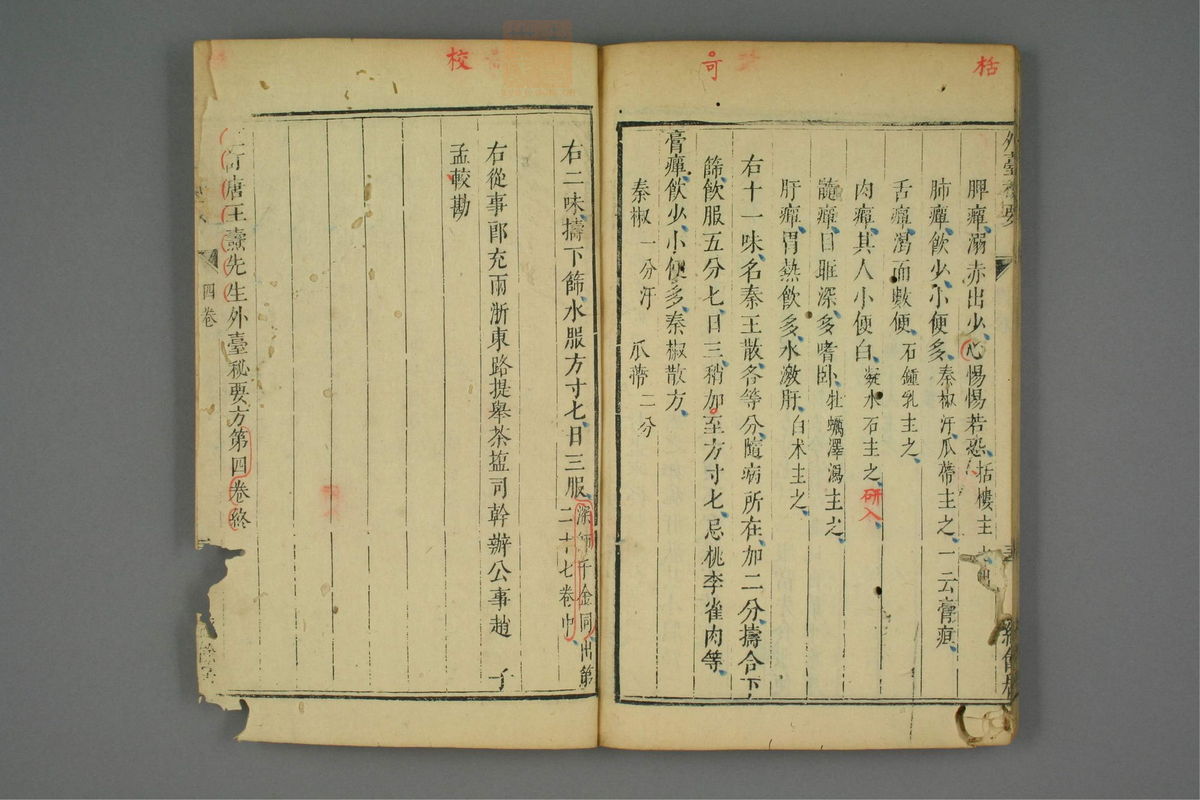 栝
可
校
外臺秘要
脾癉溺赤出少心惕惕若恐栝樓主
肺癉飲少小便多秦椒汗瓜蔕主之一云膏疸
舌癉渴而數便石鍾乳主之
肉癉其人小便白凝水石主之
研入
髓癉目眶深多嗜卧牡蠣澤瀉主之
肝癉胃熱飲多水激肝白术主之
右十一味名秦王散各等分隨病所在加二分擣合下
篩飲服五分七日三稍加至方寸七忌桃李雀肉等
膏癉飲少小便多秦椒散方
秦椒一分汗　瓜蔕二分
右二味擣下篩水服方寸七日三服深師千金同出第二十七卷中
右從事郎充兩浙東路提舉茶塩司幹辦公事趙　子
孟較勘
唐王燾先生外臺秘要方第四卷終
四卷